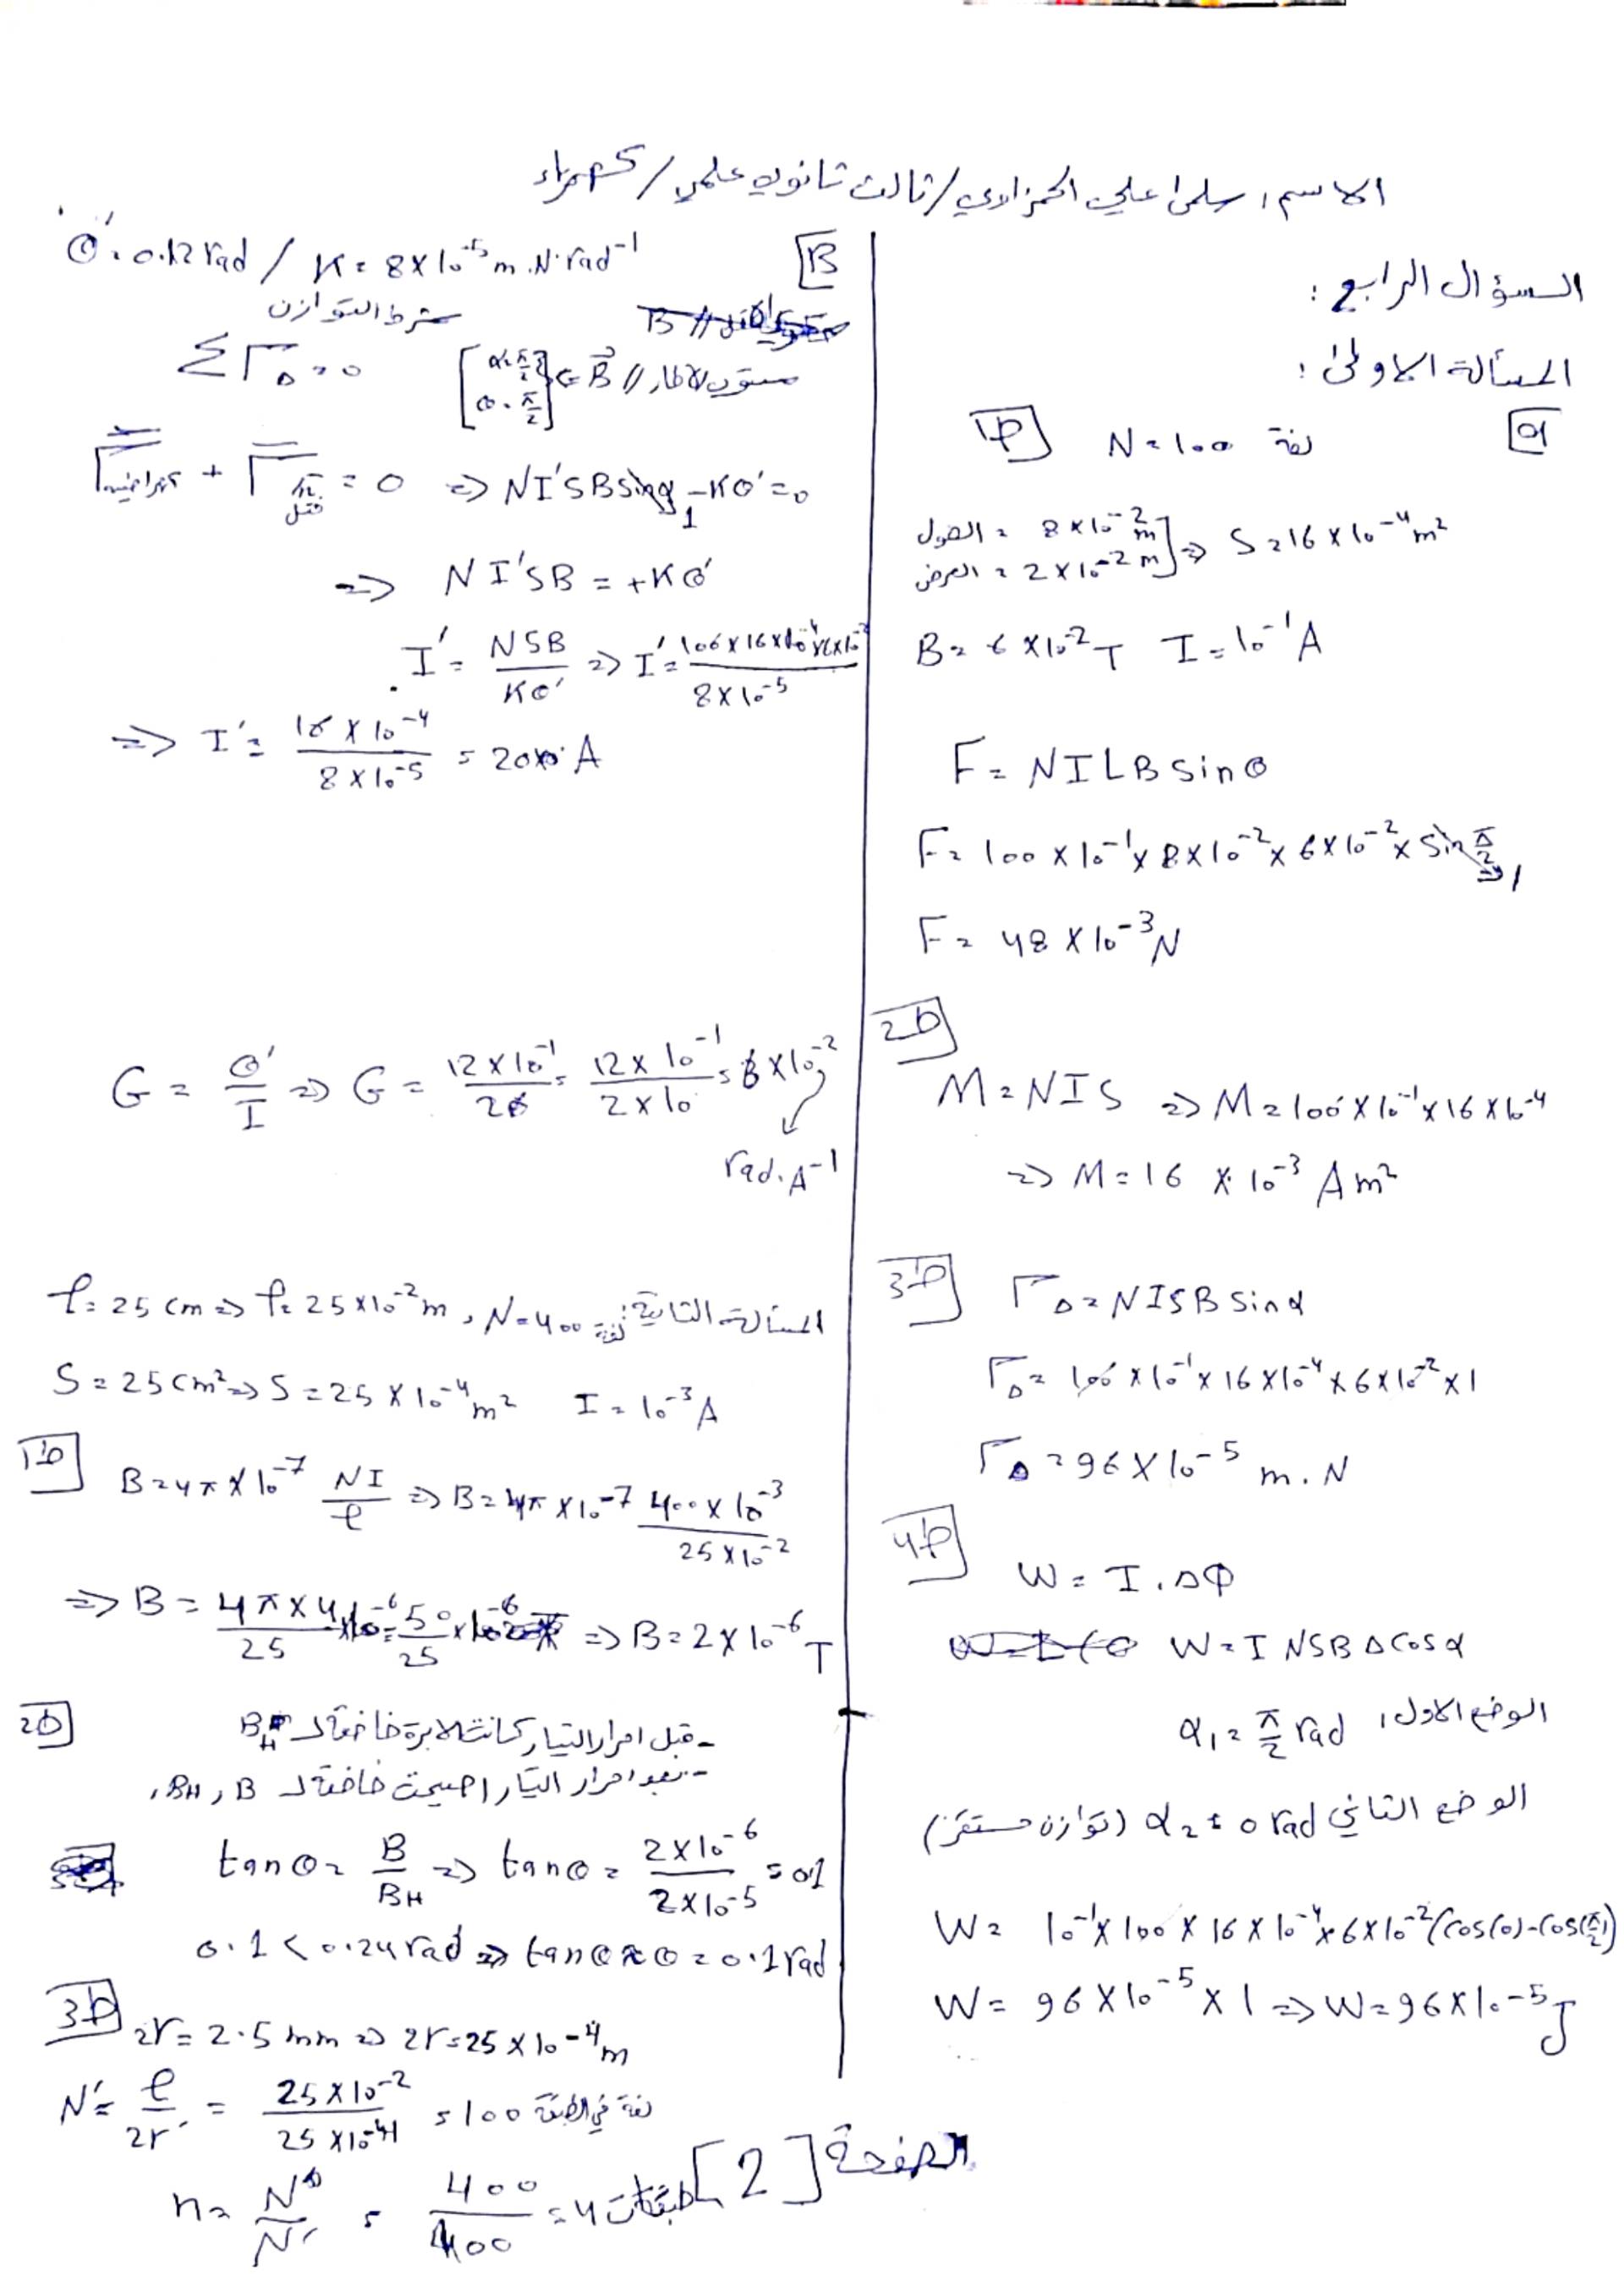 الاسم: سلمى علي الحمزاوي / ثالث ثانوي علمي / كهرباء
السؤال الرابع :
المسألة الاولى :
N = 100 لفة
الطول = 8 × 10⁻² m
العرض = 2 × 10⁻² m ] ⇒ S = 16 × 10⁻⁴ m²
B = 6 × 10⁻² T I = 10⁻¹ A
F = NILB sin θ
F = 100 × 10⁻¹ × 8 × 10⁻² × 6 × 10⁻² × sin π/2 ⇒ 1
F = 48 × 10⁻³ N
2ط
M = NIS ⇒ M = 100 × 10⁻¹ × 16 × 10⁻⁴
⇒ M = 16 × 10⁻³ Am²
3ط Γ_Δ = NISB sin α
Γ_Δ = 100 × 10⁻¹ × 16 × 10⁻⁴ × 6 × 10⁻² × 1
Γ_Δ = 96 × 10⁻⁵ m.N
4ط
W = I . ΔΦ
W = I NSB Δ cos α
الوضع الاول: α₁ = π/2 rad
الوضع الثاني α₂ = 0 rad (توازن مستقر)
W = 10⁻¹ × 100 × 16 × 10⁻⁴ × 6 × 10⁻² (cos(0) - cos(π/2))
W = 96 × 10⁻⁵ × 1 ⇒ W = 96 × 10⁻⁵ J
B
θ' = 0.12 rad / K = 8 × 10⁻⁵ m.N.rad⁻¹
شرط التوازن
Σ Γ_Δ = 0 [α = π/2 θ = π/2] ⇐ B // مستوي الاطار
Γ كهرطيسية + Γ فتل = 0 ⇒ NI'SB sin α 1 - Kθ' = 0
⇒ NI'SB = +Kθ'
I' = NSB / Kθ' ⇒ I' = 100 × 16 × 10⁻⁴ × 6 × 10⁻² / 8 × 10⁻⁵
⇒ I' = 16 × 10⁻⁴ / 8 × 10⁻⁵ = 20 A
G = θ' / I ⇒ G = 12 × 10⁻¹ / 20 = 12 × 10⁻¹ / 2 × 10 = 6 × 10⁻²
rad.A⁻¹
المسألة الثانية: ℓ = 25 cm ⇒ ℓ = 25 × 10⁻² m , N = 400 لفة
S = 25 cm² ⇒ S = 25 × 10⁻⁴ m² I = 10⁻³ A
1ط B = 4π × 10⁻⁷ NI / ℓ ⇒ B = 4π × 10⁻⁷ 400 × 10⁻³ / 25 × 10⁻²
⇒ B = 4π × 4 / 25 × 10⁻⁶ = 50 / 25 × 10⁻⁶ ⇒ B = 2 × 10⁻⁶ T
2ط
- قبل امرار التيار كانت الابرة خاضعة لـ B_H
- بعد امرار التيار اصبحت خاضعة لـ B , BH ,
tan θ = B / BH ⇒ tan θ = 2 × 10⁻⁶ / 2 × 10⁻⁵ = 0.1
0.1 < 0.24 rad ⇒ tan θ ≈ θ = 0.1 rad
3ط 2r = 2.5 mm ⇒ 2r = 25 × 10⁻⁴ m
N' = ℓ / 2r' = 25 × 10⁻² / 25 × 10⁻⁴ = 100 لفة في الطبقة
n = N / N' = 400 / 100 = 4 طبقات
الصفحة [2]